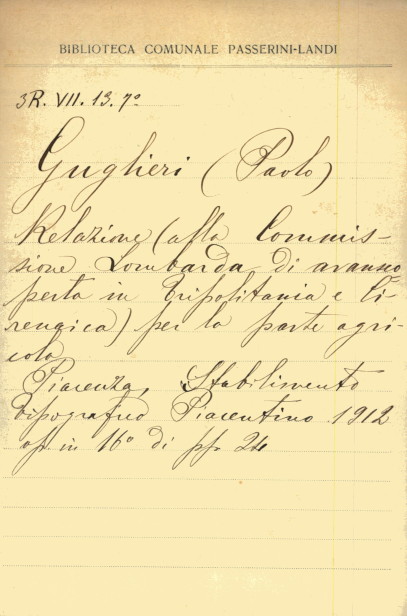 BIBLIOTECA COMUNALE PASSERINI-LANDI
3R. VII. 13. 7º
Guglieri (Paolo)
Relazione (alla Commis-
sione Lombarda di avansco
perta in Tripolitania e Ci-
renaica) per la parte agri-
cola
Piacenza, Stabilimento
Tipografico Piacentino 1912
op. in 16º di pp. 24